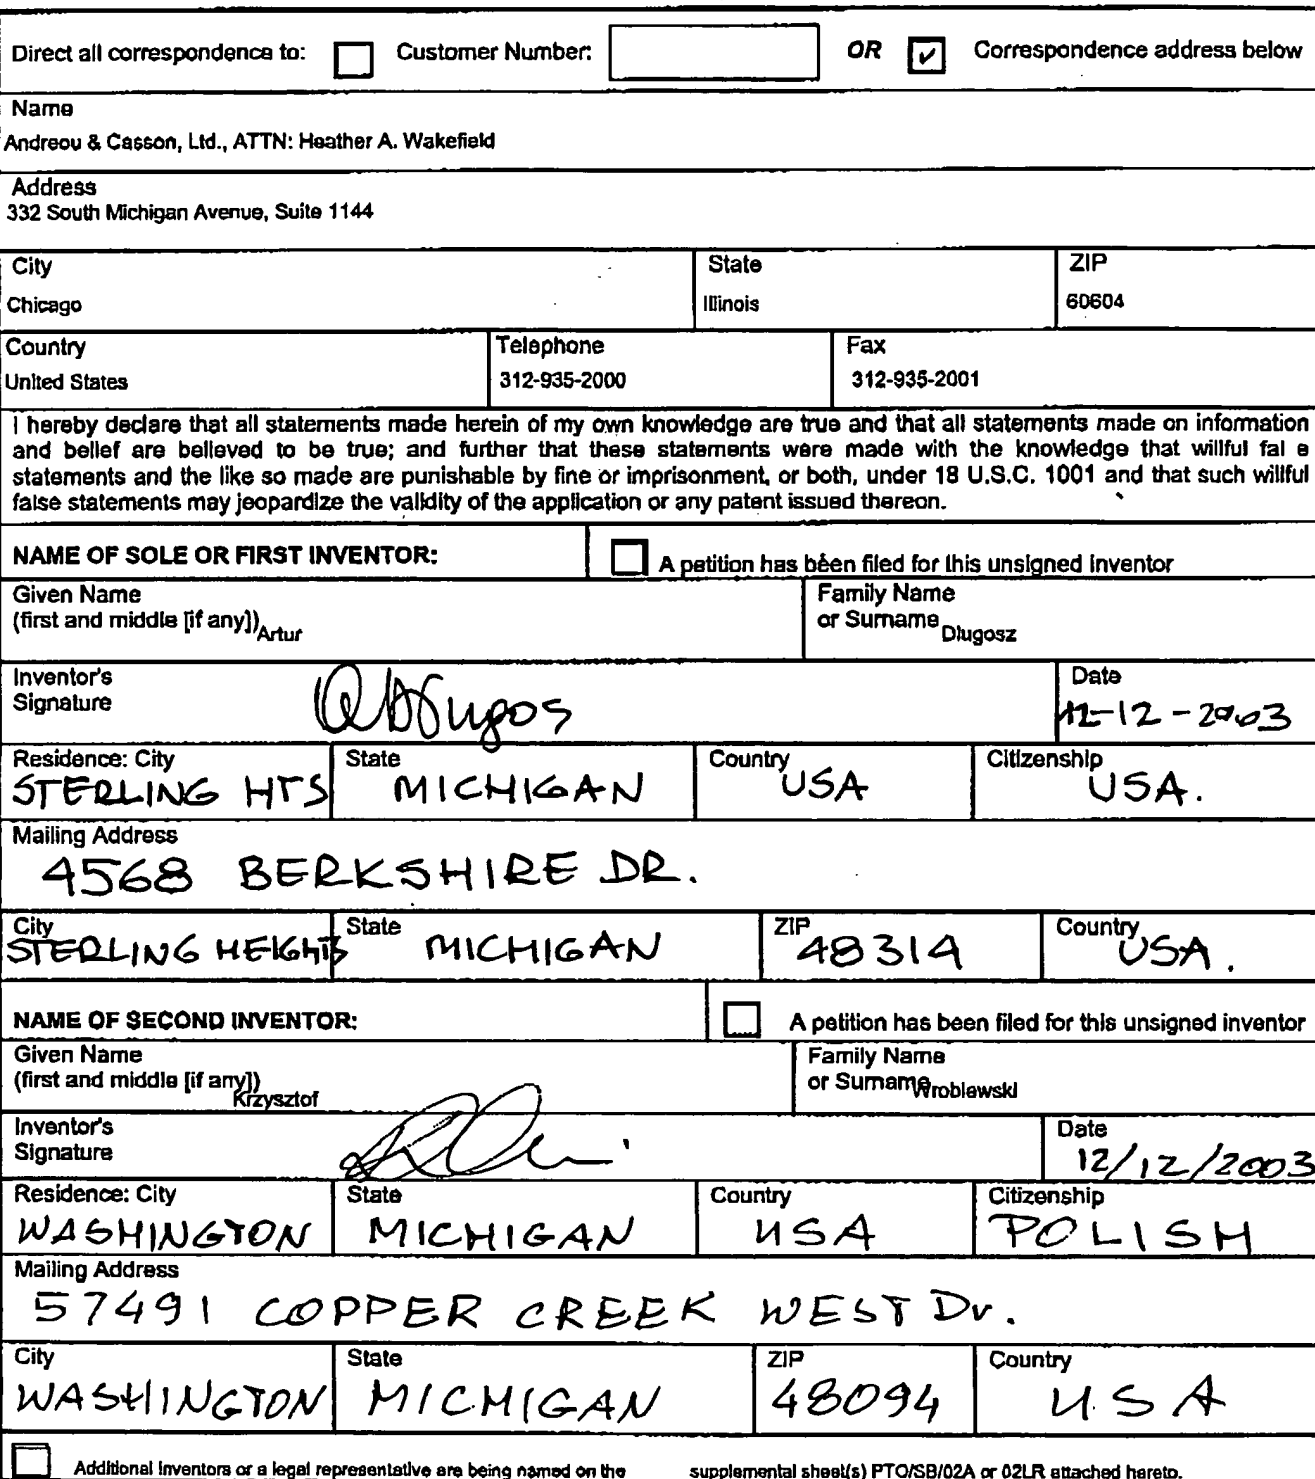 Direct all correspondence to: Customer Number: OR ✓ Correspondence address below
Name
Andreou & Casson, Ltd., ATTN: Heather A. Wakefield
Address
332 South Michigan Avenue, Suite 1144
City State ZIP
Chicago Illinois 60604
Country Telephone Fax
United States 312-935-2000 312-935-2001
I hereby declare that all statements made herein of my own knowledge are true and that all statements made on information
and belief are believed to be true; and further that these statements were made with the knowledge that willful fal e
statements and the like so made are punishable by fine or imprisonment, or both, under 18 U.S.C. 1001 and that such willful
false statements may jeopardize the validity of the application or any patent issued thereon.
NAME OF SOLE OR FIRST INVENTOR: A petition has been filed for this unsigned inventor
Given Name Family Name
(first and middle [if any]) Artur or Surname Dlugosz
Inventor's Date
Signature 12-12-2003
Residence: City State Country Citizenship
STERLING HTS MICHIGAN USA USA.
Mailing Address
4568 BERKSHIRE DR.
City State ZIP Country
STERLING HEIGHTS MICHIGAN 48314 USA.
NAME OF SECOND INVENTOR: A petition has been filed for this unsigned inventor
Given Name Family Name
(first and middle [if any]) Krzysztof or Surname Wroblewski
Inventor's Date
Signature 12/12/2003
Residence: City State Country Citizenship
WASHINGTON MICHIGAN USA POLISH
Mailing Address
57491 COPPER CREEK WEST Dr.
City State ZIP Country
WASHINGTON MICHIGAN 48094 USA
Additional inventors or a legal representative are being named on the supplemental sheet(s) PTO/SB/02A or 02LR attached hereto.